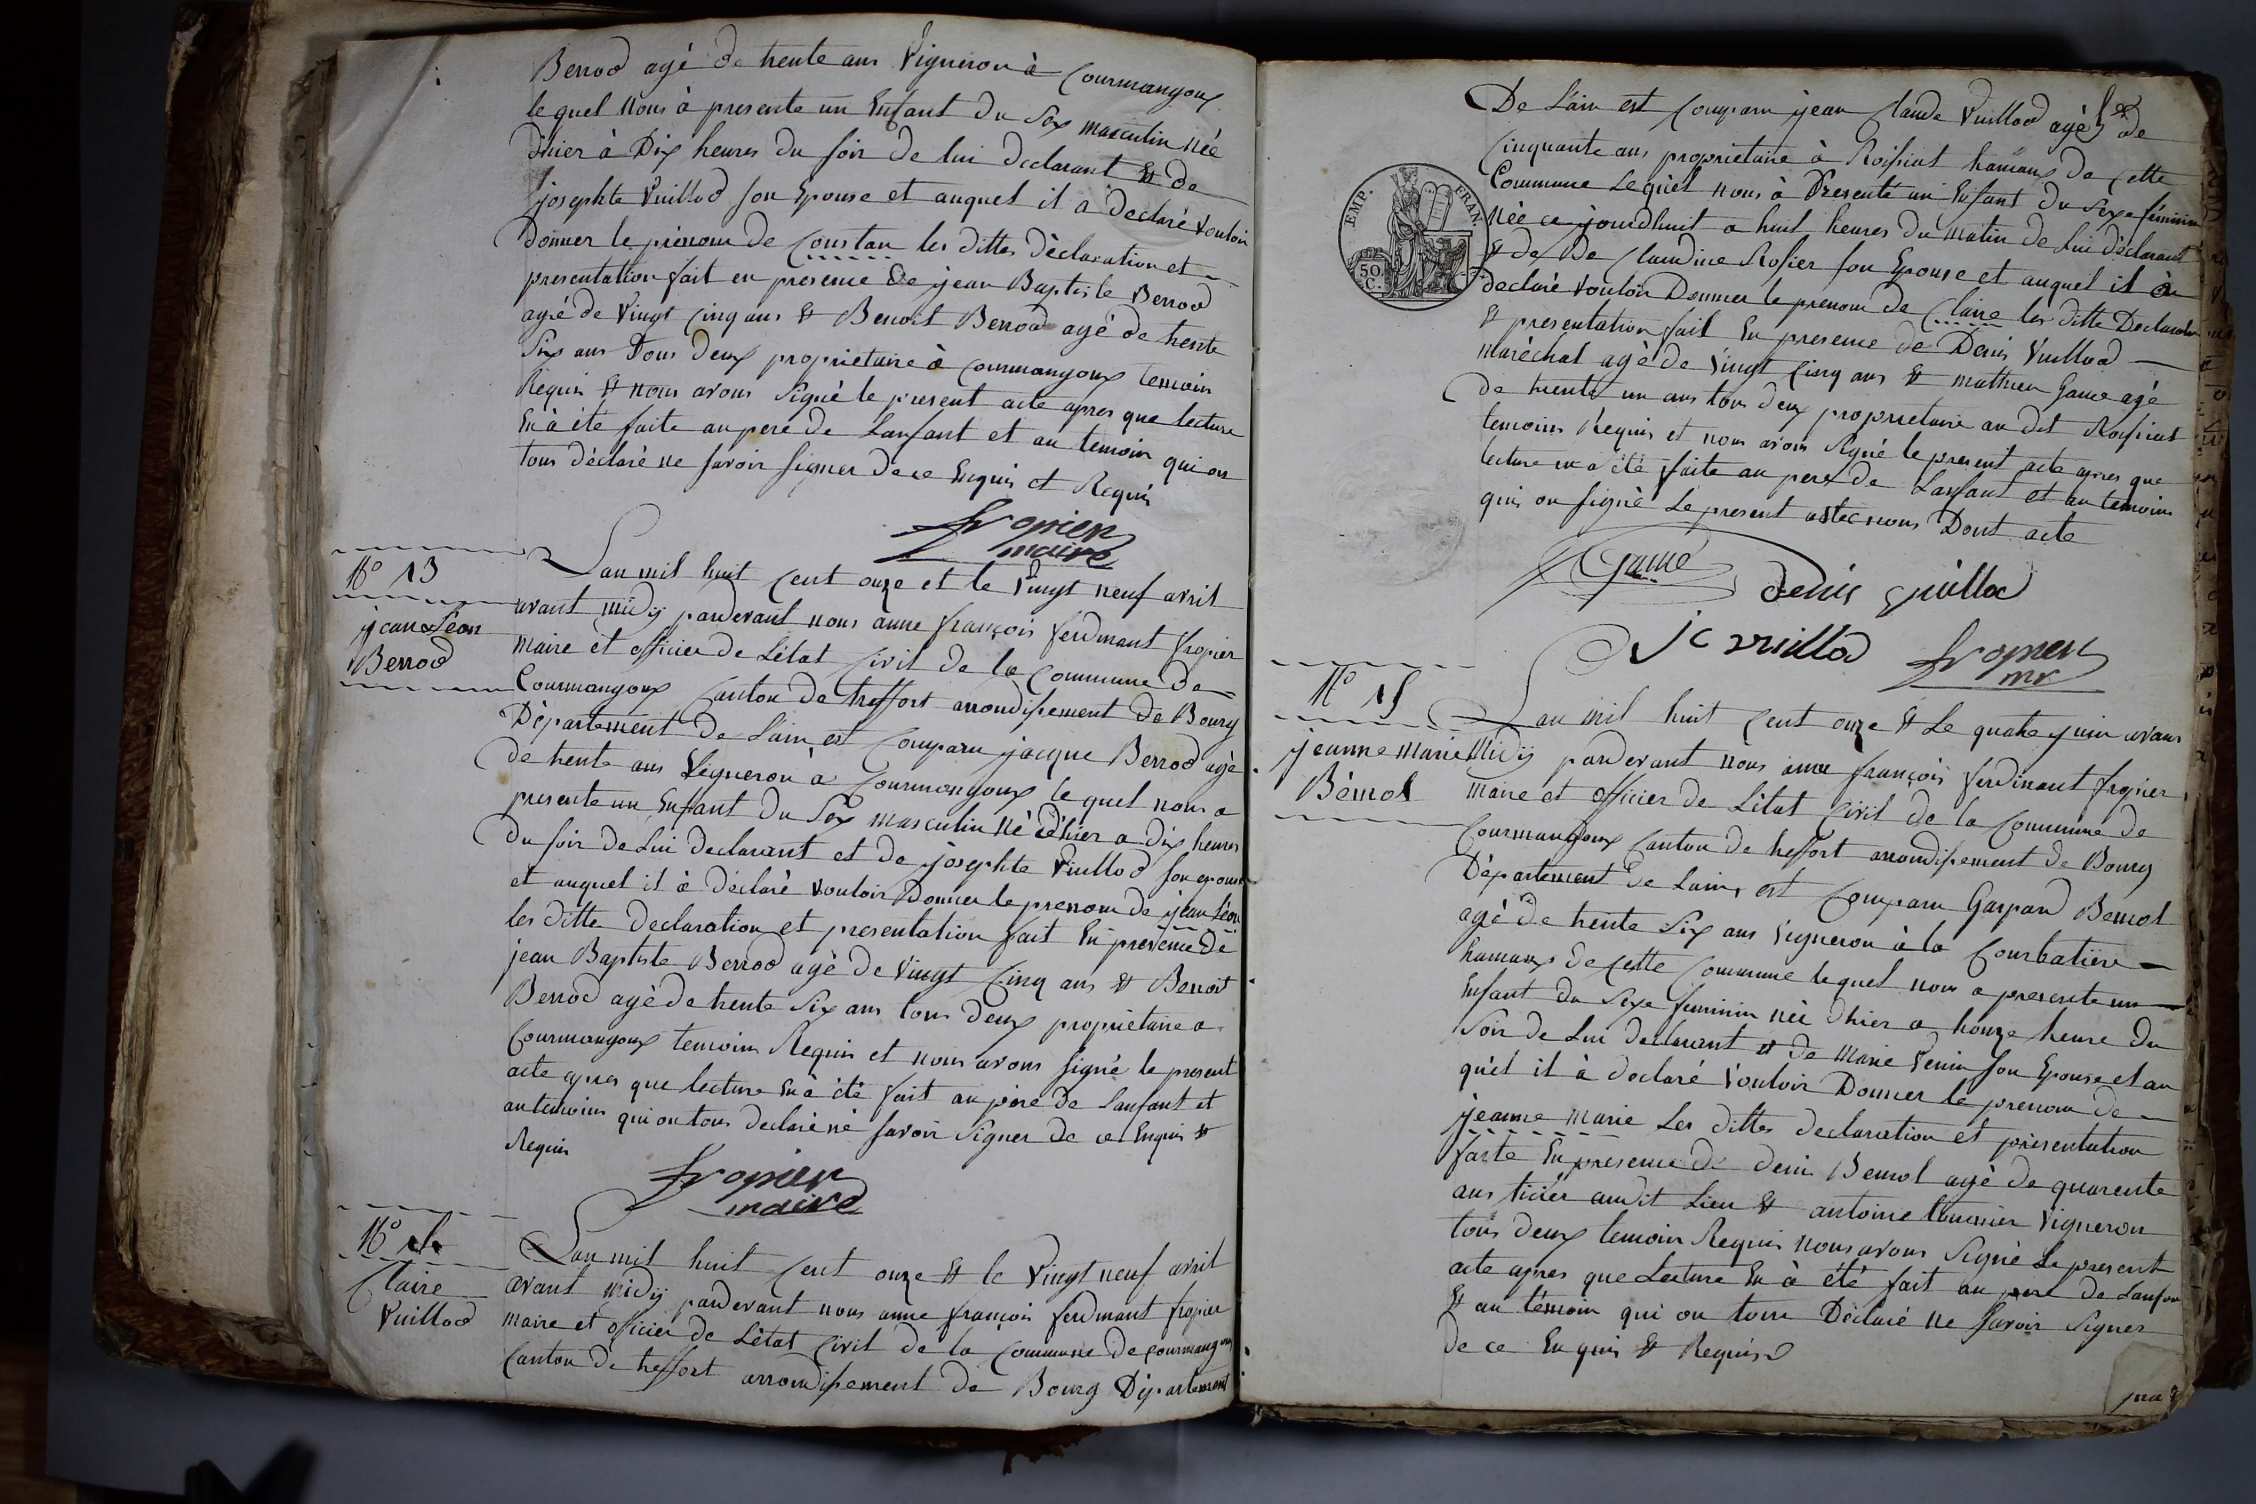 Berrod agé de trente ans Vigneron à Courmangoux
le quel nous à presente un Enfant du Sex masculin née
d'hier à Dix heures du soir de lui declarant & de
josephte Vuillod son Epouse et auquel il a declaré vouloir
donner le prénom de Constan les dittes déclaration et
presentation fait en presence de jean Baptiste Berrod
agé de Vingt cinq ans & Benoit Berrod agé de trente
Six ans Tous deux propriétaire à Courmangoux temoin
Requis & nous avons Signé le present acte apres que lecture
En à été faite au pere de Lanfant et au temoin qui on
tous déclaré ne savoir signer de ce Enquis et Requis
fropier
maire
N° 13
jean Léon
Berrod
Lan mil huit Cent onze et le Vingt neuf avril
avant midy pardevant nous anne françois ferdinant fropier
maire et officier de Létat Civil de la Commune de
Courmangoux Canton de treffort arrondissement de Bourg
Département de Lain est Comparu jacque Berrod agé
de trente ans Vigneron à Courmangoux le quel nous a
presente un Enfant du Sex masculin né d'hier a dix heures
du soir de Lui declarant et de josephte Vuillod son epouse
et auquel il à déclaré vouloir Donner le prenom de jean Léon
les ditte declaration et presentation fait En presence De
jean Baptiste Berrod agé de Vingt Cinq ans & Benoit
Berrod agé de trente Six ans tous deux propriétaire a
Courmangoux temoin Requis et nous avons signé le present
acte apres que lecture En à été fait au père de Lanfant et
au temoins qui on tous declaré né savoir Signer de ce Enquis &
Requis
fropier
maire
N° 14
Claire
Vuillod
Lan mil huit Cent onze & le Vingt neuf avril
avant midy pardevant nous anne françois ferdinant fropier
maire et officier de Létat Civil de la Commune de courmangoux
Canton de treffort arrondissement de Bourg Département
De Lain est Comparu jean Claude Vuillod agé de
Cinquante ans propriétaire à Roissiat hameau de Cette
Commune Lequel nous à Presenté un Enfant du Sexe féminin
Née ce jourdhuit a huit heures du matin de Lui déclarant
& de De Claudine Rosier son Epouse et auquel il à
declaré vouloir Donner le prenom de Claire les ditte Declaration
& presentation fait En presence de Denis Vuillod
maréchal agé de Vingt Cinq ans & mathieu Game agé
de trente un ans tous deux proprietaire au dit Roissiat
temoins Requis et nous avons Signé le present acte apres que
lecture en a été faite au pere de Lanfant et au temoins
qui on signé Le present avec nous Dont acte
EMP. FRAN.
50 C.
Game
denis vuillod
jc vuillod
fropier
mr
N° 15
jeanne marie
Bémol
Lan mil huit Cent onze & Le quatre juin avant
Midy pardevant nous anne françois ferdinant fropier
maire et officier de Létat Civil de la Commune de
Courmangoux Canton de treffort arrondissement de Bourg
Département de Lain, est Comparu Gaspard Bemol
agé de trente Six ans Vigneron à la Courbatière
hameau de Cette Commune lequel nous a presente un
Enfant du Sexe feminin née d'hier a honze heure du
Soir de Lui declarant & de Marie Venin son Epouse et au
quel il à declaré Vouloir Donner le prenom de
jeanne marie Les dittes declaration et présentation
faite En presence de denis Bemol agé de quarente
ans ticier audit Lieu & antoine Vigneron
tous deux temoin Requis nous avons Signé Le present
acte apres que Lecture En à été fait au pere de Lanfan
& au témoin qui on tous Déclaré ne Savoir Signer
de ce Enquis & Requis